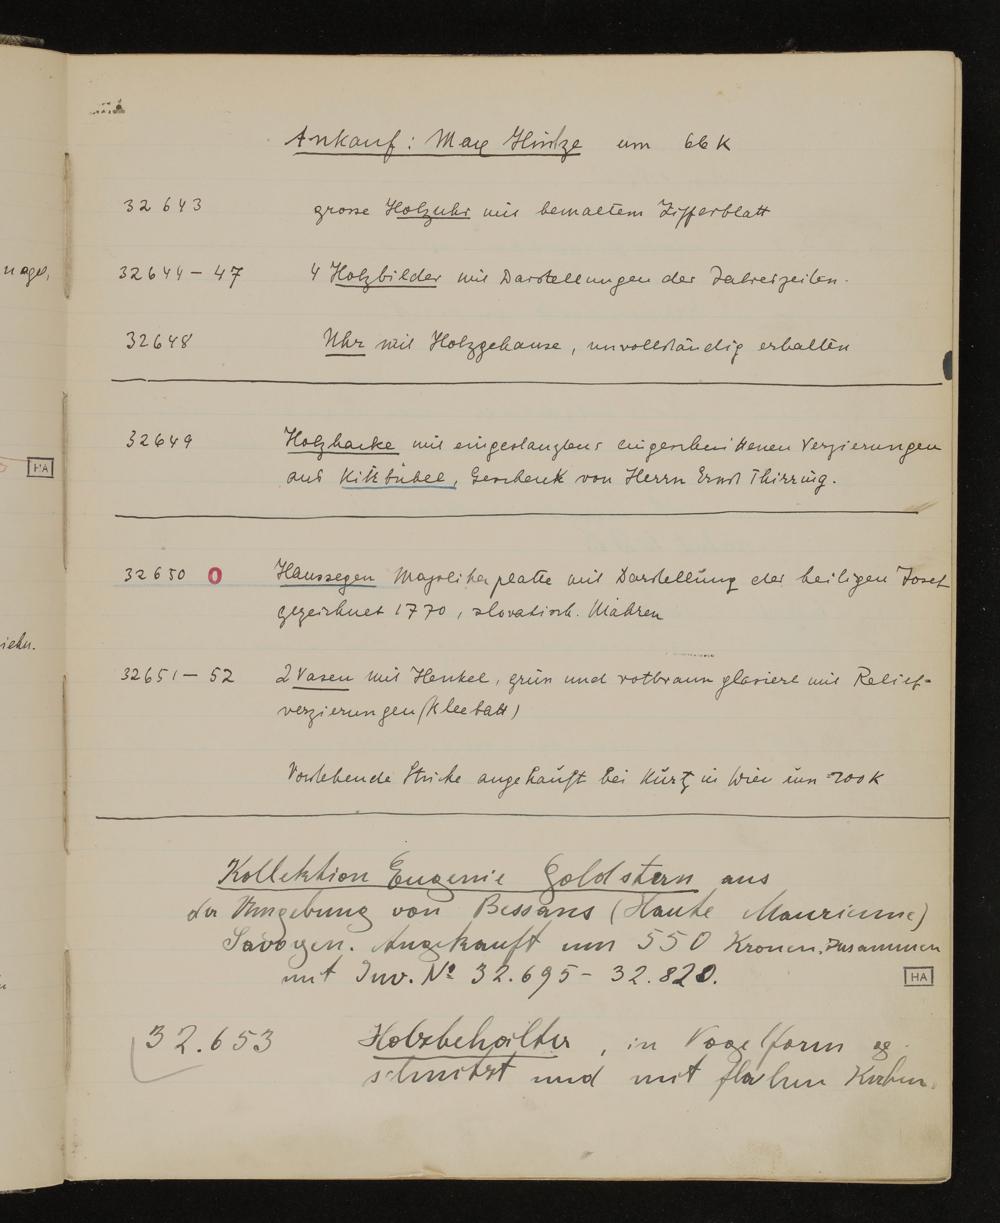 Ankauf: Max Hintze um 66 K
32643 grosse Holzuhr mit bemaltem Zifferblatt
nagel,
32644 – 47 4 Holzbilder mit Darstellungen der Jahreszeiten.
32648 Uhr mit Holzgehäuse, unvollständig erhalten
32649 Holzhacke mit eingestanzten, eingeschnittenen Verzierungen
HA
aus Kitzbühel, Geschenk von Herrn Ernst Thirring.
32650 O Haussegen Majolikaplatte mit Darstellung des heiligen Josef
gezeichnet 1770, slovakisch. Mähren
32651 – 52 2 Vasen mit Henkel, grün und rotbraun glasiert mit Relief-
verzierungen (Kleeblatt)
Vorstehende Stücke angekauft bei Kurtz in Wien um 200 K
Kollektion Eugenie Goldstern aus
der Umgebung von Bessans (Haute Maurienne)
Savoyen. Angekauft um 550 Kronen, zusammen
mit Inv. No 32.695 – 32.820.
HA
32.653 Holzbehälter, in Vogelform ge-
schnitzt und mit flachen Kerben.